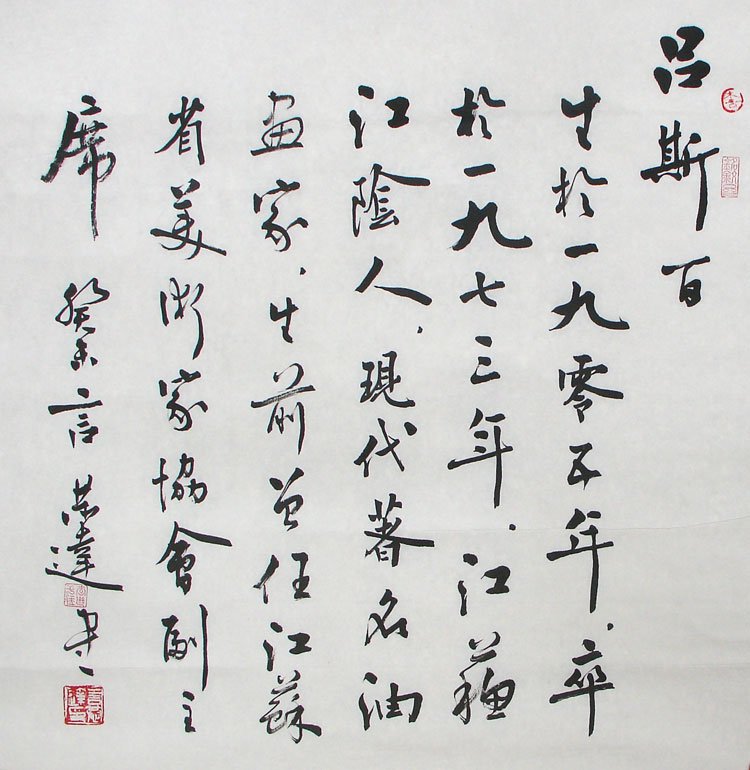 吕斯百
生於一九零五年、卒
於一九七三年、江蘇
江陰人、現代著名油
畫家、生前曾任江蘇
省美術家協會副主
席 癸未 言荣達書